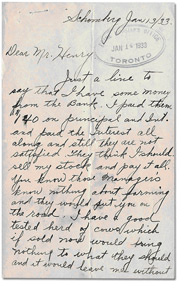 Schomberg Jan 13/33.
JAN 14 1933
TORONTO
Dear Mr. Henry
Just a line to
say that I have some money
from the Bank. I paid them
$40 on principal and Int.
and paid the interest all
along and still they are not
satisfied. They think I should
sell my stock and pay it all.
You know those managers
know nothing about farming
and they would put you on
the road. I have a good
tested herd of cows which if
sold now would bring
nothing to what they should
and it would leave me without